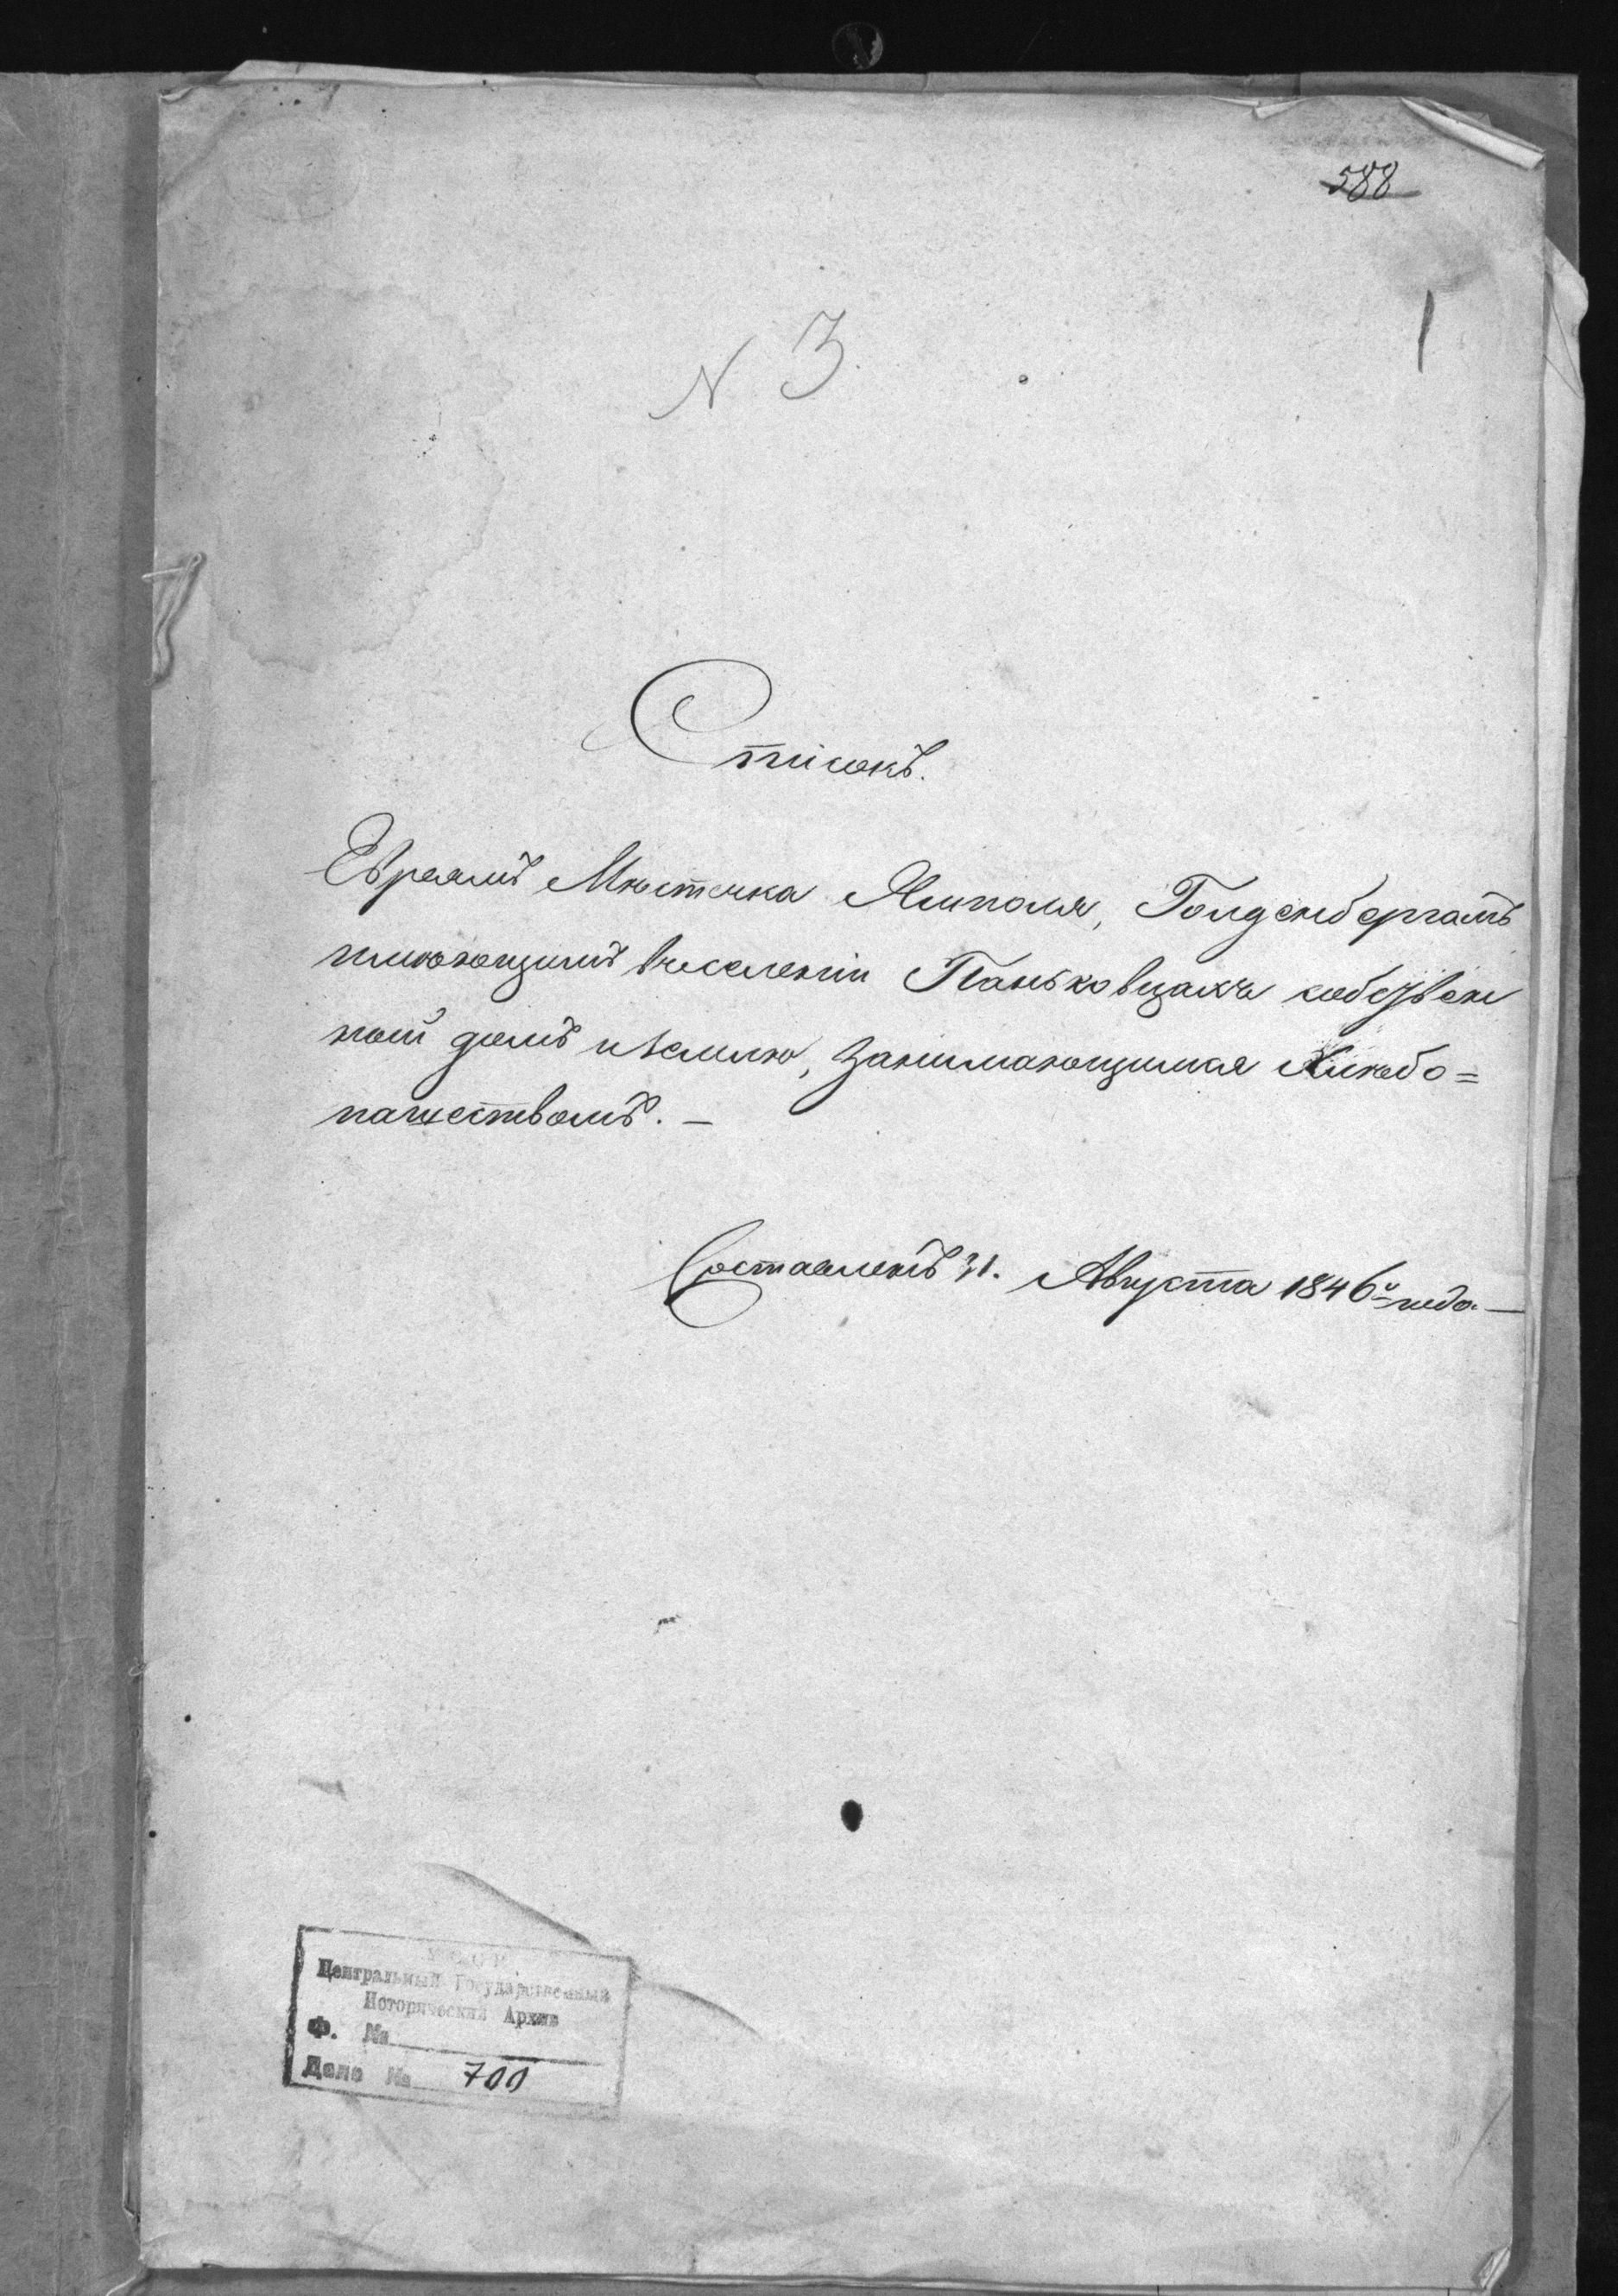 588
1
N 3.
Списокъ.
Евреямъ Мѣстечка Ямполя, Голденбергамъ
имѣющимъ вчеселеніи Паньковцахъ собствен
ной домъ и землю, занимающимся Хлѣбо=
пашествомъ. —
Составленъ 31. Августа 1846го года. —
У.С.С.Р.
Центральный Государственный
Исторический Архив
Ф. №
Дело № 700